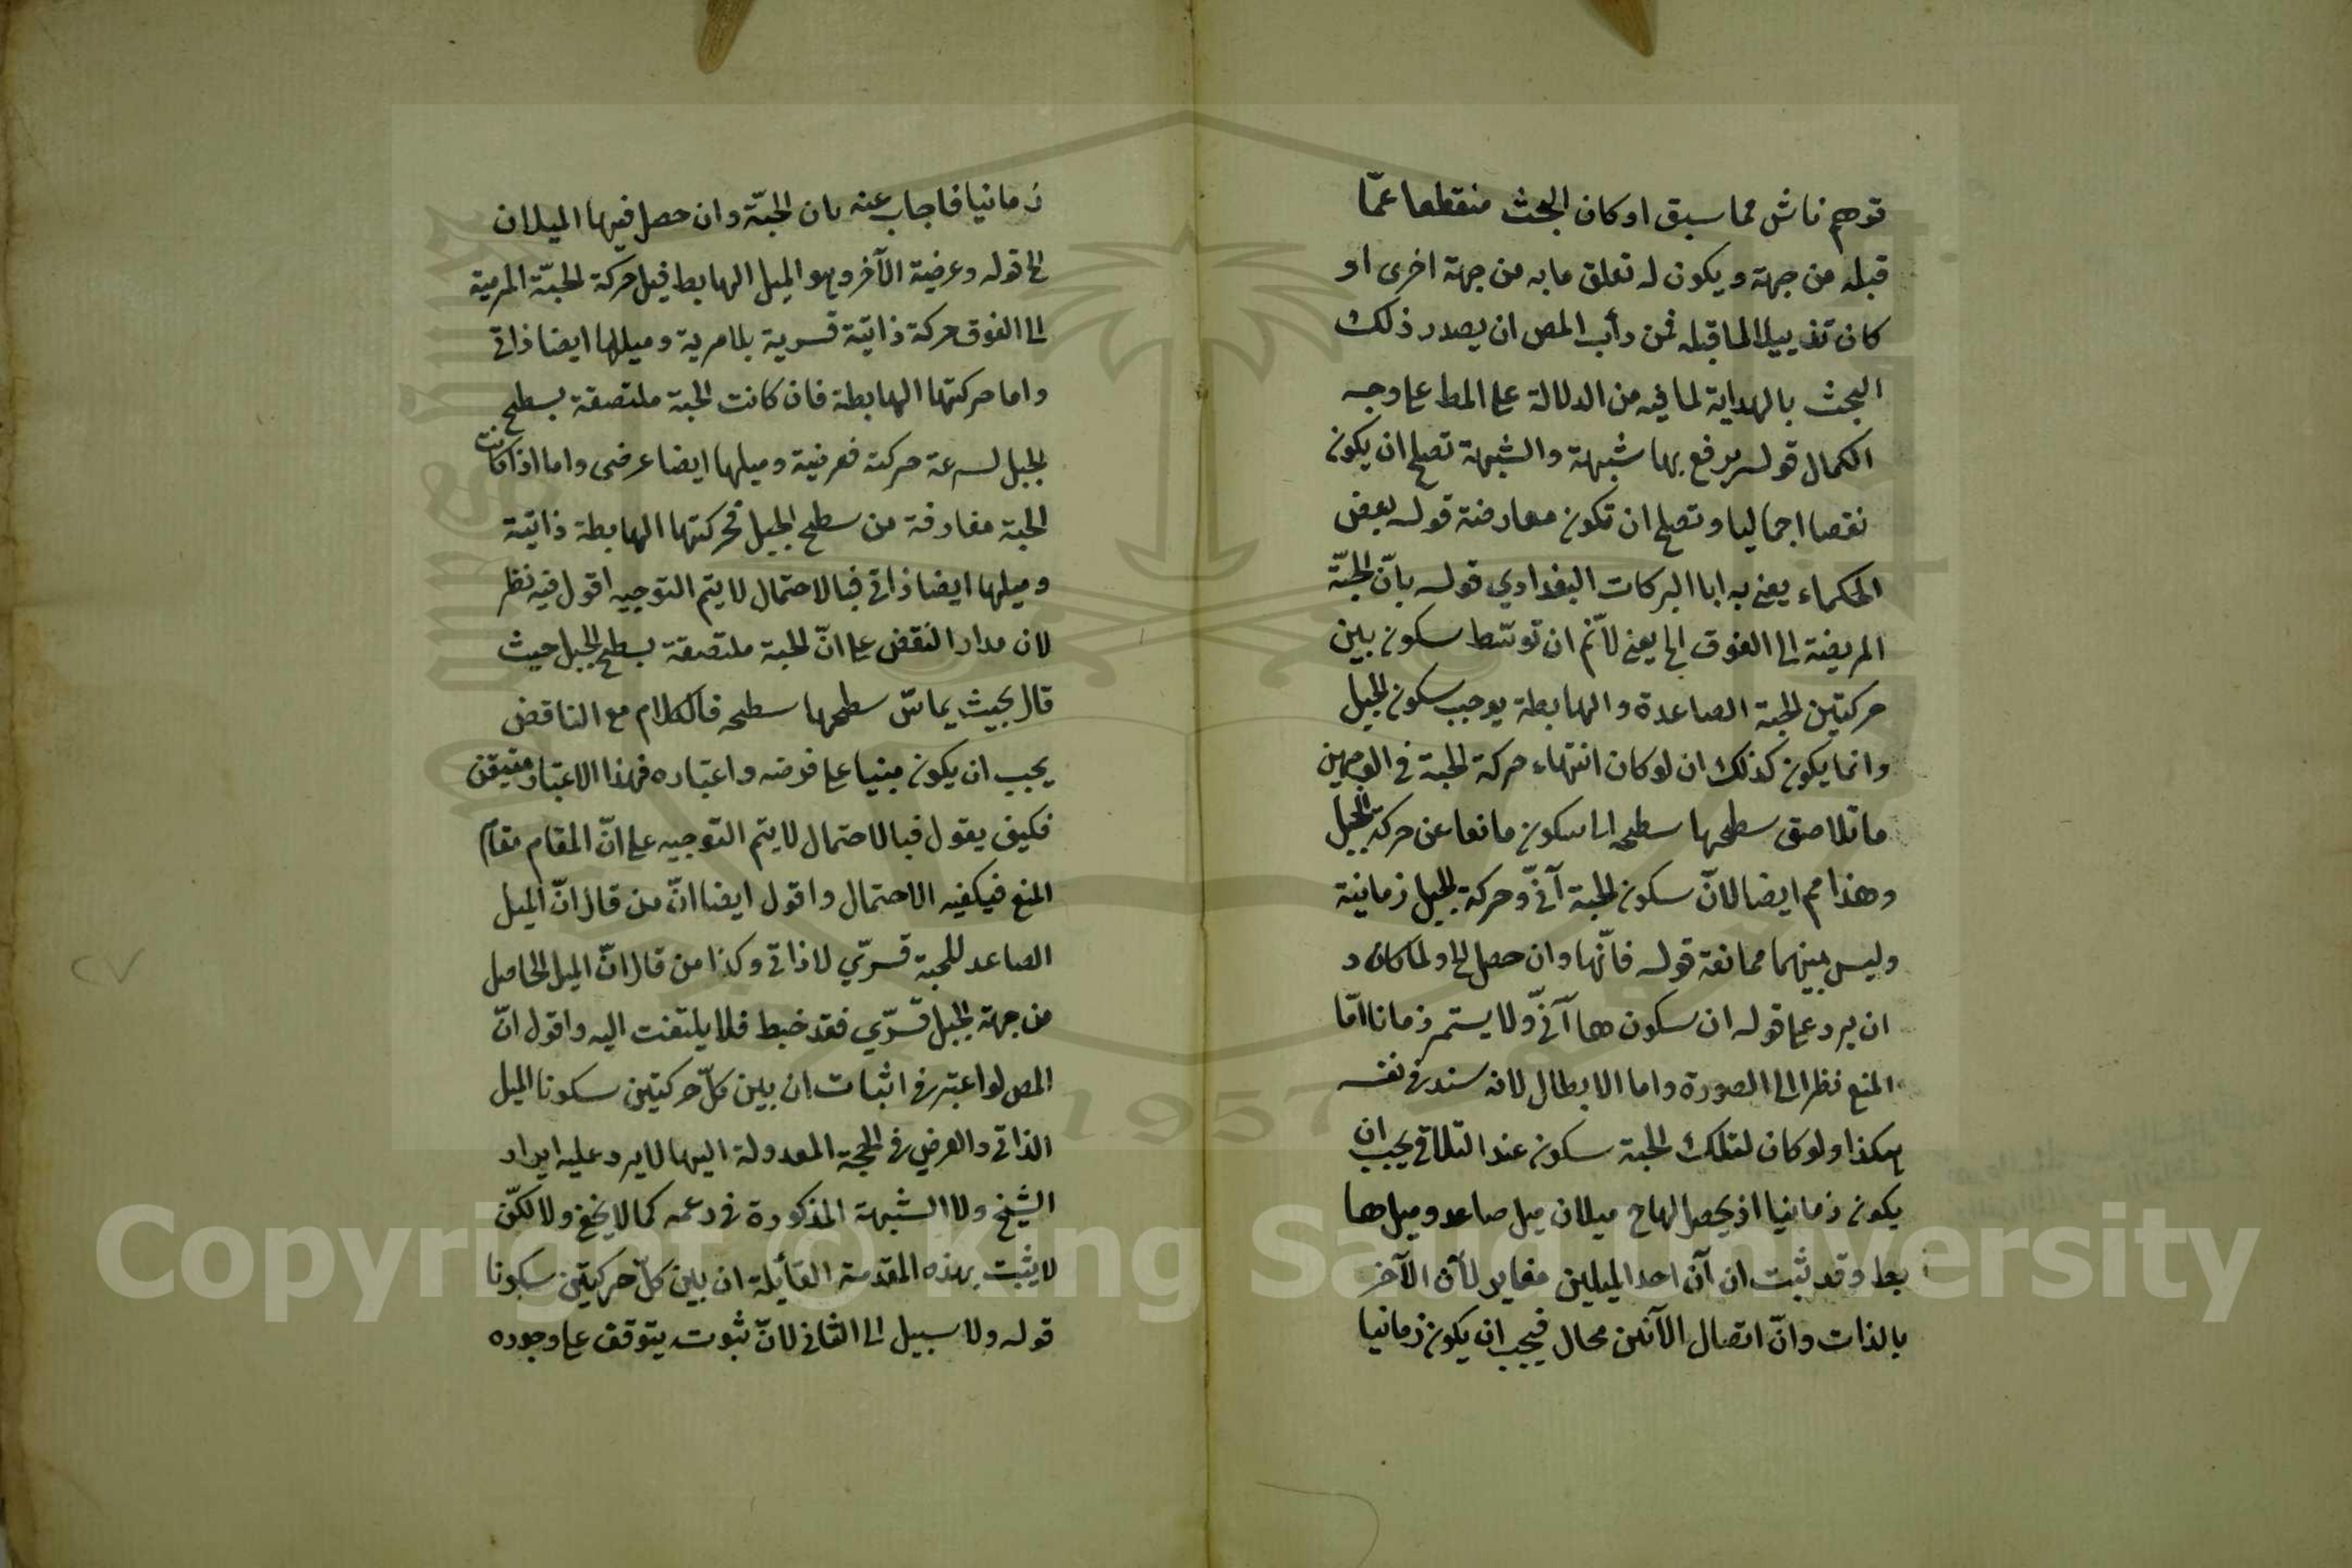 توهم ناش مما سبق او كان البحث منقطعا عمّا
قبله من جهة ويكون له تعلق ما به من جهة اخرى او
كان تذييلا لما قبله فمن دأب المص ان يصدر ذلك
البحث بالهداية لما فيه من الدلالة على المط على وجه
الكمال قوله يرفع بها شبهة والشبهة تصلح ان يكون
نقضا اجماليا وتصلح ان تكون معارضة قوله بعض
الحكماء يعنى به ابا البركات البغدادي قوله بانّ الحبّة
المرمية الى الفوق الخ يعنى لانم ان توسّط سكون بين
حركتين الحبة الصاعدة والهابطة يوجب سكون الجبل
وانما يكون كذلك ان لو كان انتهاء حركة الحبة فى الوجهين
ما تلاصق سطحها سطحه الى سكون مانعا عن حركة الجبل
وهذا مم ايضا لانّ سكون الحبة آنىّ وحركة الجبل زمانية
وليس بينهما ممانعة قوله فانّها وان حصل الخ ولما كان
ان يرد على قوله ان سكون ها آنىّ ولا يستمر زمانا امّا
المنع نظرا الى الصورة واما الابطال لانه سند فى نفسه
هكذا ولو كان لتلك الحبة سكون عند التلاقى يجب ان
يكون زمانيا اذ يحصل لها ح ميلان ميل صاعد وميل ها
بط وقد ثبت ان آن احد الميلين مغاير لآن الآخر
بالذات وانّ اتصال الآنين محال فيجب ان يكون زمانيا
زمانيا فاجاب عنه بان الحبّة وان حصل فيها الميلان
الى قوله وعرضية الآخر وهو الميل الهابط قيل حركة الحبّة المرمية
الى الفوق حركة ذاتية قسرية بلا مرية وميلها ايضا ذاتى
واما حركتها الهابطة فان كانت الحبة ملتصقة بسطح
الجبل لسرعة حركته فعرضية وميلها ايضا عرضى واما اذا كانت
الحبة مفارقة من سطح الجبل فحركتها الهابطة ذاتية
وميلها ايضا ذاتى فبالاحتمال لا يتم التوجيه اقول فيه نظر
لان مدار النقض على انّ الحبة ملتصقة بسطح الجبل حيث
قال بحيث يماسّ سطحها سطحه فالكلام مع الناقض
يجب ان يكون مبنيا على فرضه واعتباره فهذا الاعتبار متيقن
فكيف يقول فبالاحتمال لا يتم التوجيه على انّ المقام مقام
المنع فيكفيه الاحتمال واقول ايضا انّ من قال انّ الميل
الصاعد للحبة قسرّي لا ذاتى وكذا من قال انّ الميل الحاصل
من جهة الجبل قسرّي فقد خبط فلا يلتفت اليه واقول انّ
المص لو اعتبر فى اثبات ان بين كلّ حركتين سكونا الميل
الذاتى والعرضى فى الحجة المعدولة اليها لا يرد عليه ايراد
الشيخ ولا الشبهة المذكورة فى زعمه كما لا يخفى ولا لكنّ
لا يثبت بهذه المقدمة القائلة ان بين كلّ حركتين سكونا
قوله ولا سبيل الى الثانى لانّ ثبوته يتوقف على وجوده
٢٧
Copyright © King Saud University
1957